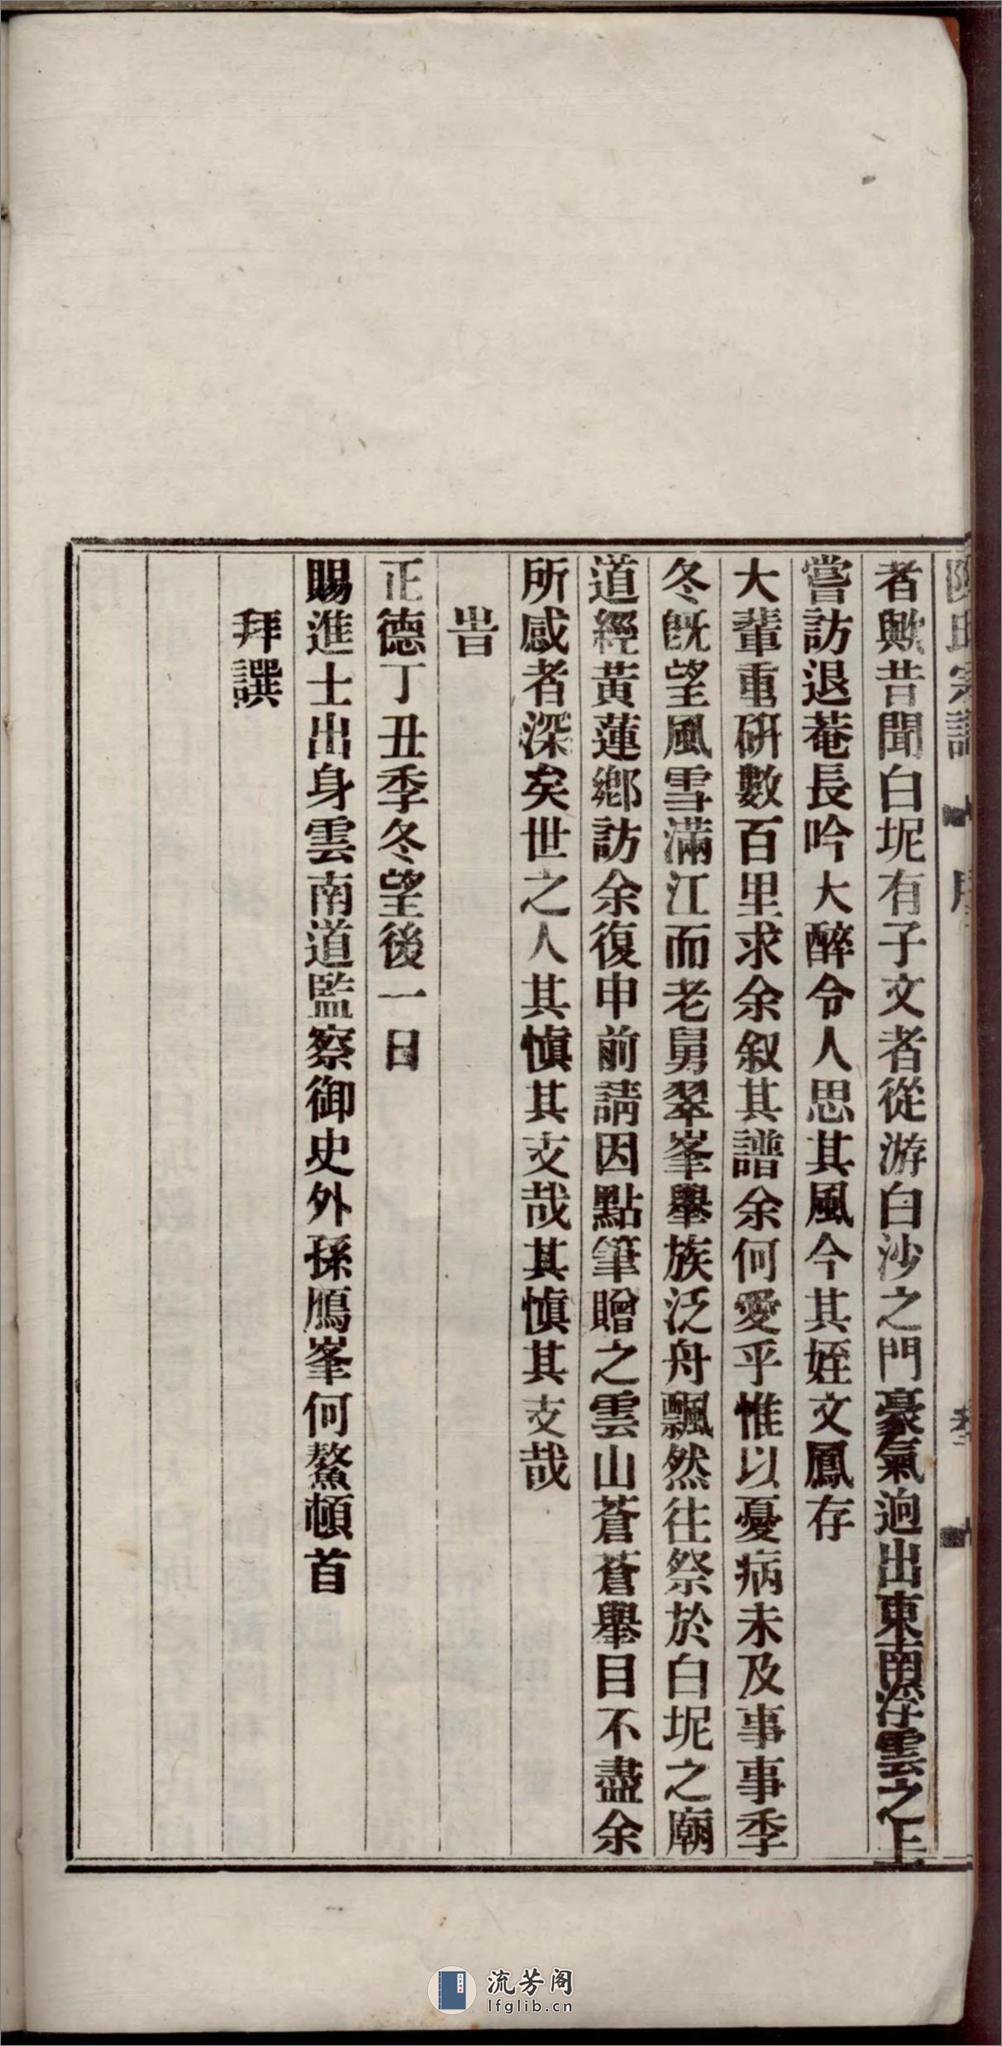 陳氏宗譜 序
者歟昔聞白坭有子文者從游白沙之門豪氣迥出東南浮雲之上
嘗訪退菴長吟大醉令人思其風今其姪文鳳存
大輩重硏數百里求余叙其譜余何愛乎惟以憂病未及事事季
冬旣望風雪滿江而老舅翠峯舉族泛舟飄然往祭於白坭之廟
道經黃蓮鄉訪余復申前請因點筆贈之雲山蒼蒼舉目不盡余
所感者深矣世之人其愼其支哉其愼其支哉
旹
正德丁丑季冬望後一日
賜進士出身雲南道監察御史外孫鴈峯何鰲頓首
拜譔
流芳阁
lfglib.cn